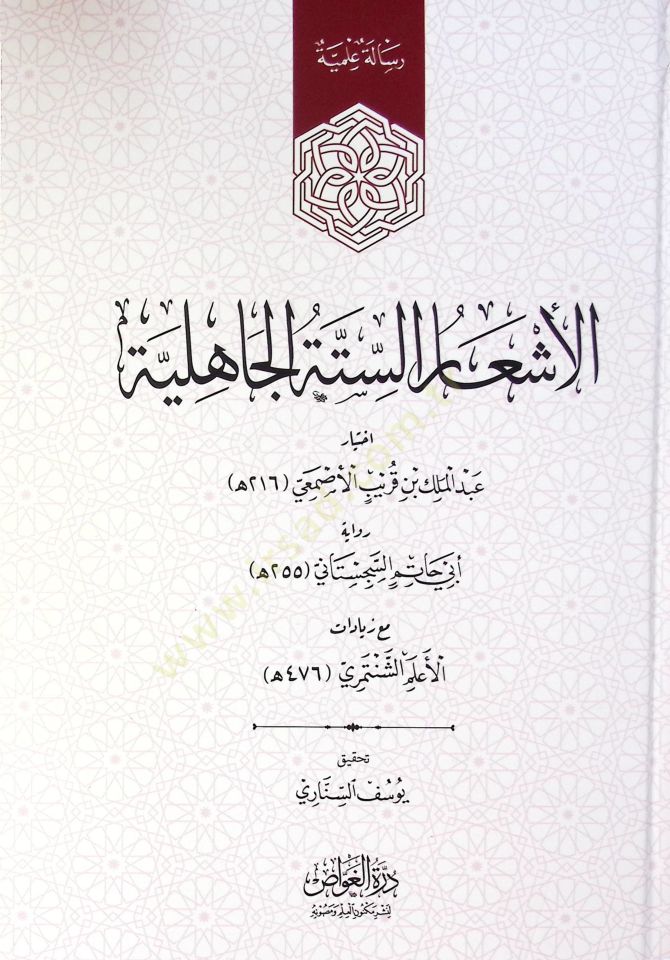 رِسَالَةٌ عِلْمِيَّةٌ
الأَشْعَارُ السِّتَّةُ الجَاهِلِيَّة
اختيار
عَبْدِ المَلِكِ بْنِ قُرَيْبٍ الأَصْمَعِيِّ (٢١٦هـ)
رواية
أَبِي حَاتِمٍ السِّجِسْتَانِيِّ (٢٥٥هـ)
مع زيادات
الأَعْلَمِ الشَّنْتَمَرِيِّ (٤٧٦هـ)
تحقيق
يُوسُف السِّنَّارِي
دُرَّةُ الغَوَّاصِ
لِنَشْرِ مَكْنُونِ العِلْمِ وَمَصُونِهِ